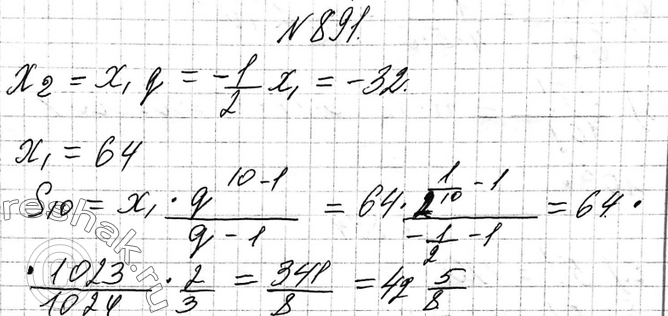 № 891.
x₂ = x₁ q = -1/2 x₁ = -32.
x₁ = 64
S₁₀ = x₁ · (q^(10-1))/(q-1) = 64 · (1/2^10 - 1)/(-1/2 - 1) = 64 ·
· 1023/1024 · 2/3 = 341/8 = 42 5/8
reshak.ru